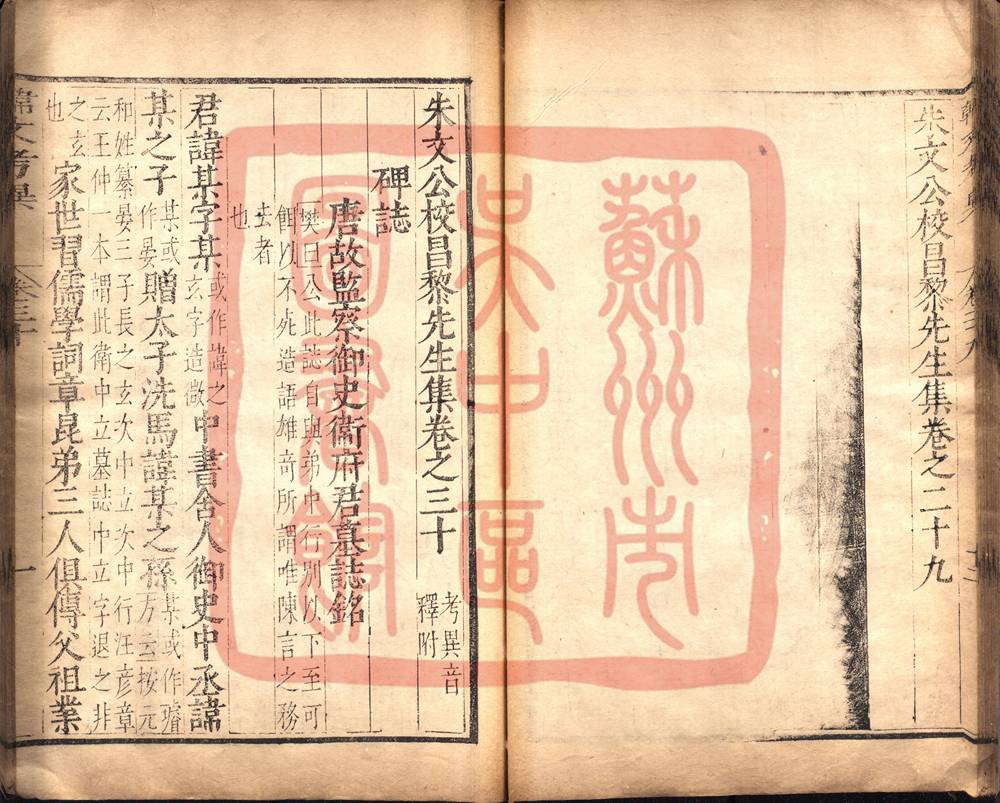 朱文公校昌黎先生集卷之二十九
蘇州市
吳中區
圖書館
朱文公校昌黎先生集卷之三十
考異音
釋附
碑誌
唐故監察御史衛府君墓誌銘
樊曰公此誌自與弟中行別以下至可
餌以不死造語雄奇所謂唯陳言之務
去者
也
君諱某字某
或作諱之
玄字造微
中書舍人御史中丞諱
某之子
某或
作晏
贈太子洗馬諱某之孫
某或作璿
方云按元
和姓纂晏三子長之玄次中立次中行汪彦章
云王仲一本謂此衛中立墓誌中立字退之非
之玄
也
家世習儒學詞章昆弟三人俱傳父祖業
韓文考異
卷三十
一